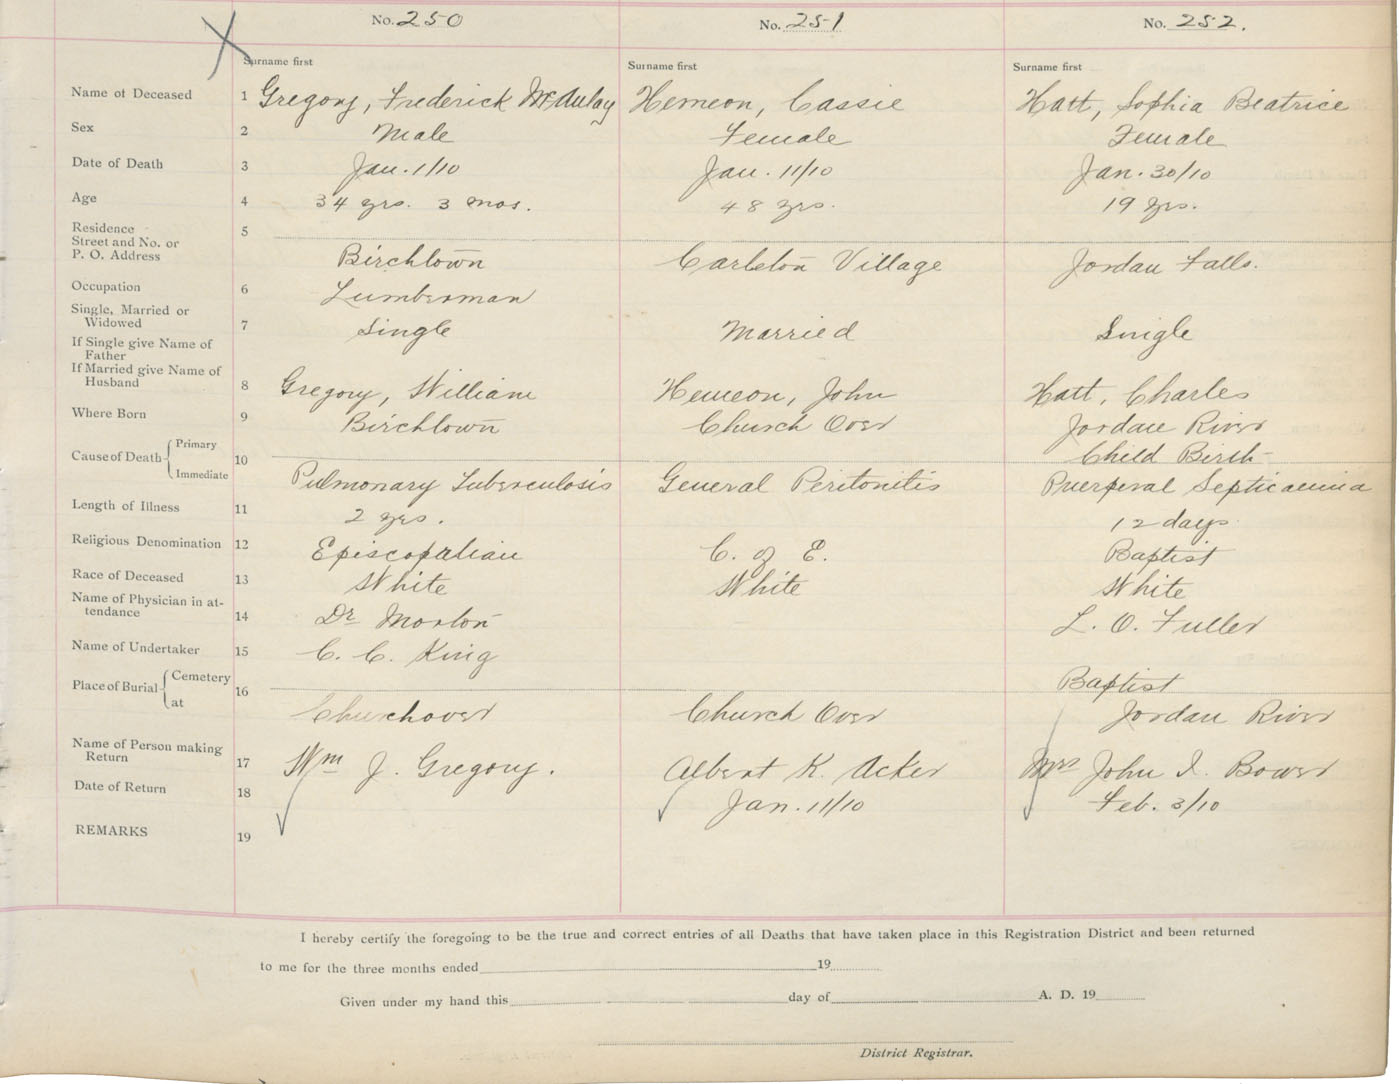 No. 250 No. 251 No. 252.
Surname first Surname first Surname first
Name of Deceased 1 Gregory, Frederick McAulay Hemeon, Cassie Hatt, Sophia Beatrice
Sex 2 Male Female Female
Date of Death 3 Jan. 1/10 Jan. 11/10 Jan. 30/10
Age 4 34 yrs. 3 mos. 48 yrs. 19 yrs.
Residence 5
Street and No. or
P. O. Address Birchtown Carleton Village Jordan Falls.
Occupation 6 Lumberman
Single, Married or
Widowed 7 Single Married Single
If Single give Name of
Father
If Married give Name of
Husband 8 Gregory, William Hemeon, John Hatt, Charles
Where Born 9 Birchtown Church Over Jordan River
Cause of Death Primary 10 Child Birth
Immediate Pulmonary Tuberculosis General Peritonitis Puerperal Septicaemia
Length of Illness 11 2 yrs. 12 days
Religious Denomination 12 Episcopalian C. of E. Baptist
Race of Deceased 13 White White White
Name of Physician in at-
tendance 14 Dr Morton L. O. Fuller
Name of Undertaker 15 C. C. King
Place of Burial Cemetery 16 Baptist
at Churchover Church Over Jordan River
Name of Person making
Return 17 Wm J. Gregory. Albert K. Acker Mrs John I. Bower
Date of Return 18 Jan. 11/10 Feb. 3/10
REMARKS 19
I hereby certify the foregoing to be the true and correct entries of all Deaths that have taken place in this Registration District and been returned
to me for the three months ended 19
Given under my hand this day of A. D. 19
District Registrar.